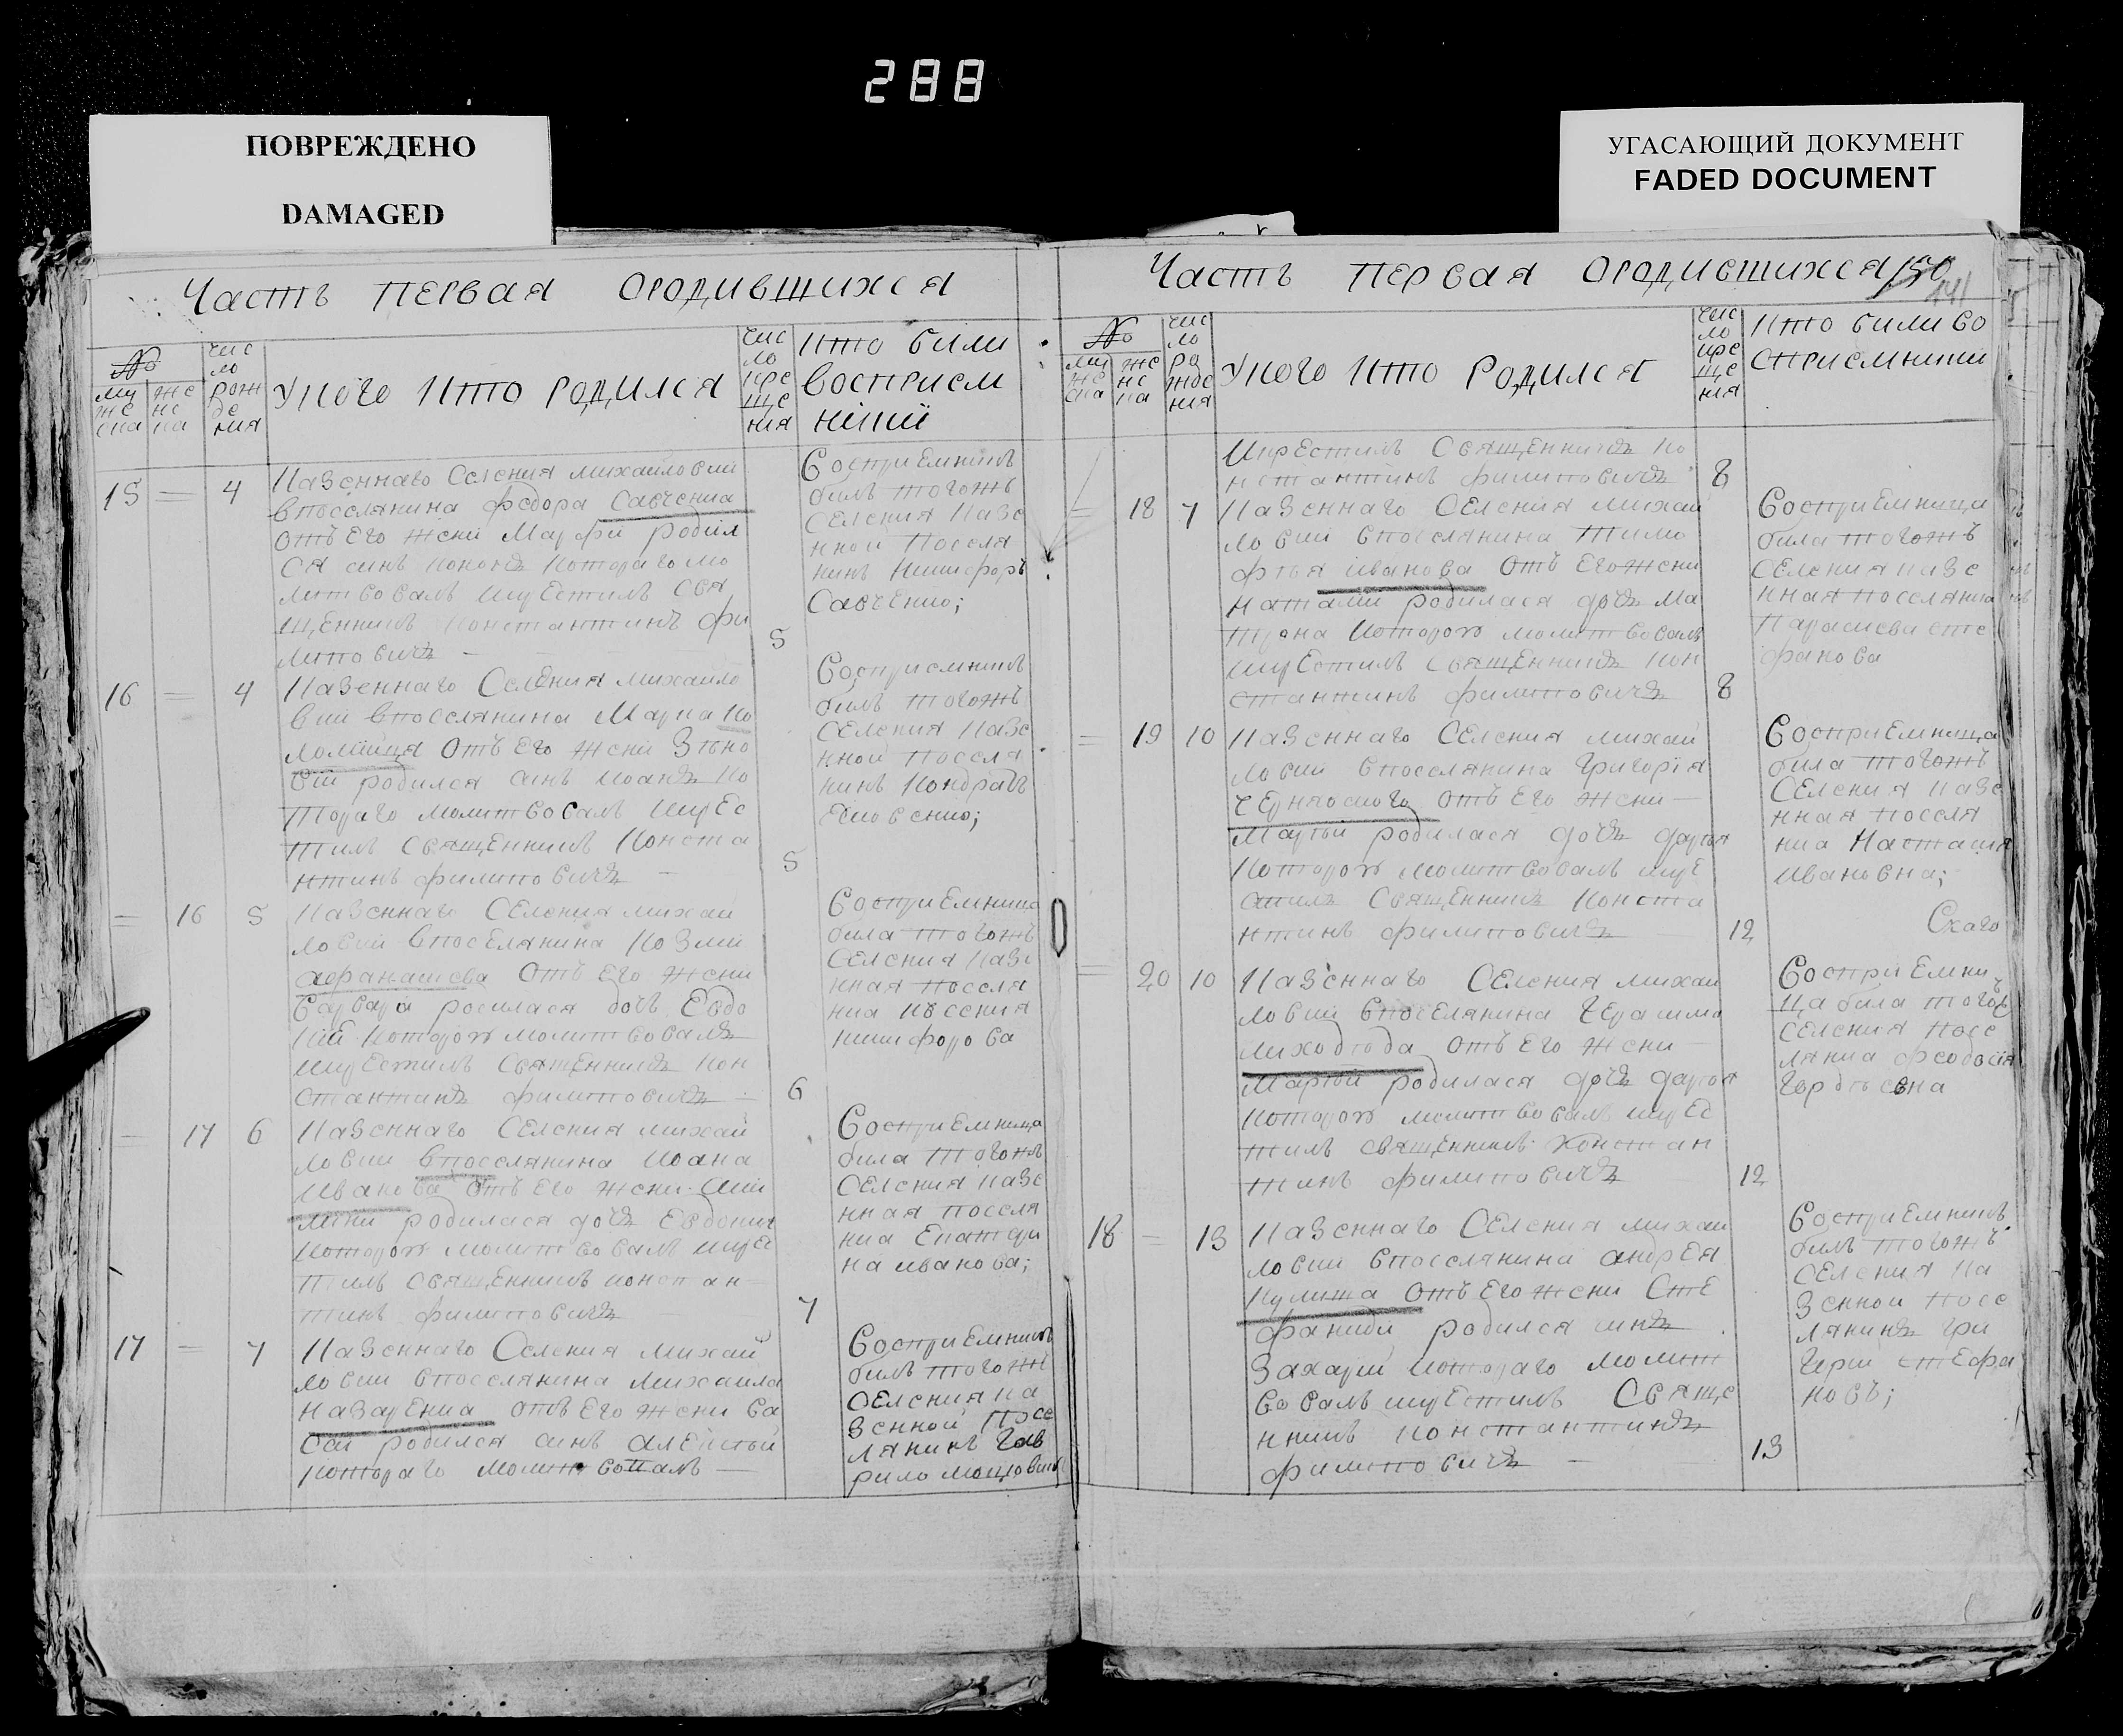 288
ПОВРЕЖДЕНО
DAMAGED
УГАСАЮЩИЙ ДОКУМЕНТ
FADED DOCUMENT
Часть первая ородившихся
№
мужеска
женска
число рождения
Укого кто родился
число крещения
кто били восприемникии
15 = 4
Казеннаго Селения михайловки
впоселянина федора Савченка
отъ Его жени Марфи родил
ся синъ кононъ котораго мо
литвовалъ икрЕстилъ Свя
щЕнникъ константинъ фи
липовичъ –
5
ВосприЕмникъ
билъ тогожъ
сЕления казе
нной поселя
нинъ никифоръ
Савченко;
16 = 4
Казеннаго Селения михайло
вки впоселянина Марка ко
ломійця отъ Его жени Зѣно
вій родился синъ иоанъ ко
тораго молитвовалъ икрЕс
тилъ СвящЕнникъ Конста
нтинъ филиповичъ –
5
Восприемникъ
билъ тогожъ
сЕления казе
нной поселя
нинъ кондратъ
= 16 5
Казеннаго СЕления михай
ловки впосЕлянина козми
афанасиева отъ Его жени
Варвари родилася дочъ Евдо
кій которою молитвовалъ
икрЕстилъ СвящЕнникъ кон
стантинъ филиповичъ –
6
ВосприЕмница
била тогожъ
сЕления казе
нная поселя
нка ксения
никифорова
– 17 6
Казеннаго СЕления михай
ловки впоселянина иоана
иванова отъ Его жени
родилася дочъ Евдокия
которою молитвовалъ икрЕс
тилъ свящЕнникъ констан–
тинъ филиповичъ –
7
ВосприЕмница
била тогожъ
сЕления казе
нная поселя
нка Екатери
на иванова;
17 – 7
Казеннаго Селения михай
ловки впоселянина михаила
назаренка отъ Его жени Ва
сси родился синъ алексЕй
котораго молитвовалъ –
ВосприЕмникъ
билъ тогожъ
сЕления ка
зенной посе
лянинъ гав
рило
Часть первая ородившихся 150
141
№
мужеска
женска
число рождения
Укого кто родился
число крещения
кто били восприемники
икрЕстилъ СвящЕнникъ ко
нстантинъ филиповичъ
8
= 18 7
Казеннаго СЕления михай
ловки впоселянина тимо
фѣя иванова отъ Его жени
наталии родилася дочъ ма
трона которою молитвовалъ
икрЕстилъ свящЕнникъ кон
стантинъ филиповичъ
8
ВосприЕмница
била тогожъ
сЕления казе
нная поселянка
параскеви сте
фанова
= 19 10
Казеннаго СЕления михай
ловки впоселянина григорія
чЕрнявского отъ Его жени –
марфи родилася дочъ дария
которою молитвовалъ икрЕ
стилъ СвящЕнникъ конста
нтинъ филиповичъ –
12
ВосприЕмница
била тогожъ
сЕления казе
нная поселя
нка Настасия
ивановна;
Скаго
= 20 10
Казеннаго СЕления михай
ловки впосЕлянина гЕрасима
лиходѣда отъ Его жени –
марфи родилася дочъ дария
которою молитвовалъ икрЕс
тилъ свящЕнникъ констан
тинъ филиповичъ
12
ВосприЕмни
ца била тогожъ
сЕления посе
лянка феодосія
гордѣевна
18 – 13
Казеннаго СЕления михай
ловки впоселянина андрЕя
кулиша отъ Его жени СтЕ
фаниди родился синъ
захарій котораго молит
вовалъ икрЕстилъ Свяще
нникъ константинъ
филиповичъ –
13
ВосприЕмникъ
билъ тогожъ
сЕления ка
зенной посе
лянинъ гри
горий стЕфа
новъ;